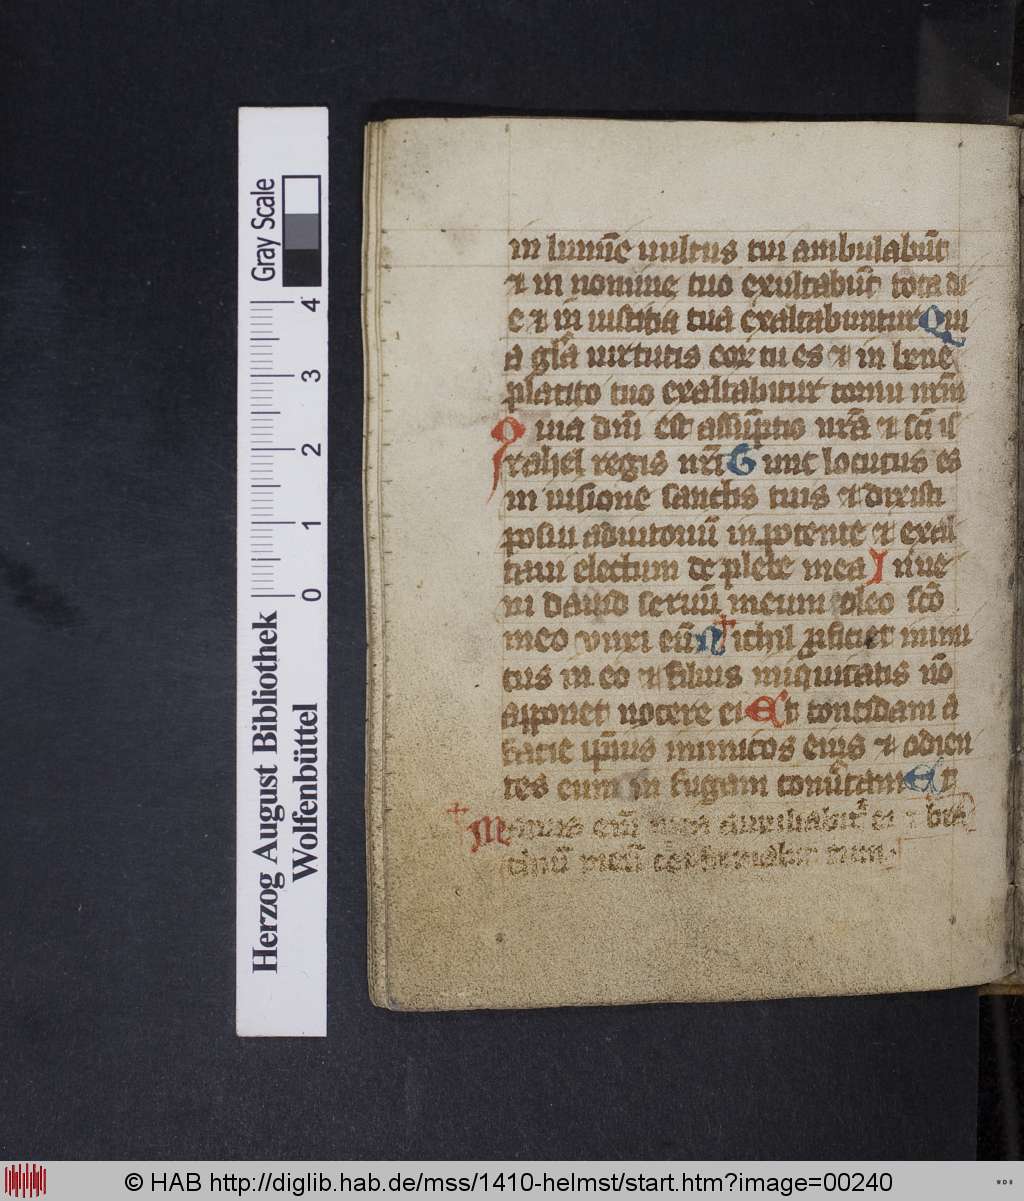 Gray Scale
4
3
2
1
0
Herzog August Bibliothek
Wolfenbüttel
in lumīe uultus tui ambulabūt
⁊ in nomine tuo exultabūt tota di
e ⁊ in iusticia tua exaltabuntur Qui
a glā uirtutis eor tu es ⁊ in bene
placito tuo exaltabitur cornu nrm̄
Quia dn̄i est assūptio nrā ⁊ scī is
rahel regis nrī Tunc locutus es
in uisione sanctis tuis ⁊ dixisti
posui adiutoriū in potente ⁊ exal
taui electum de plebe mea Inue
ni dauid seruū meum oleo scō
meo unxi eū Nichil proficiet inimi
cus in eo ⁊ filius iniquitatis nō
apponet nocere ei Et concidam a
facie ipsius inimicos eius ⁊ odien
tes eum in fugam conūtam Et
Manus eī mea auxiliabit ei ⁊ bra
chiū meū
© HAB http://diglib.hab.de/mss/1410-helmst/start.htm?image=00240